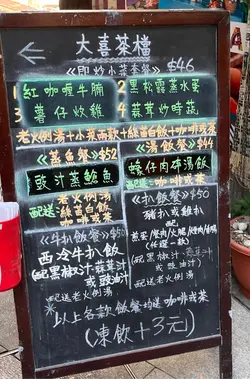 大喜茶檔
《即炒小菜套餐》$46
1紅咖喱牛腩
2黑松露蒸水蛋
3薯仔炆雞
4蒜茸炒時蔬
老火例湯+小菜兩款+絲苗白飯+咖啡或茶
《蒸魚餐》$52
豉汁蒸鯰魚
配送:老火例湯
絲苗白飯
咖啡或茶
《湯飯餐》$44
蠔仔肉碎湯飯
配送:咖啡或茶
《牛扒飯餐》$50
西冷牛扒飯
(配黑椒汁·蒜茸汁
或豉油汁)
配送老火例湯
《扒飯餐》$50
豬扒或雞扒
配:
(任選一款)
(配黑椒汁·蒜茸汁
或豉油汁)
配送老火例湯
以上各款飯餐均送咖啡或茶
(凍飲+3元)